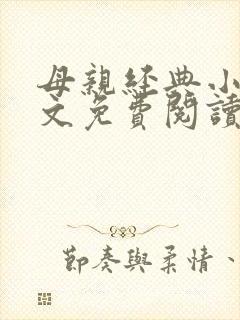 母親經典小
文免費閱讀
節奏與柔情、